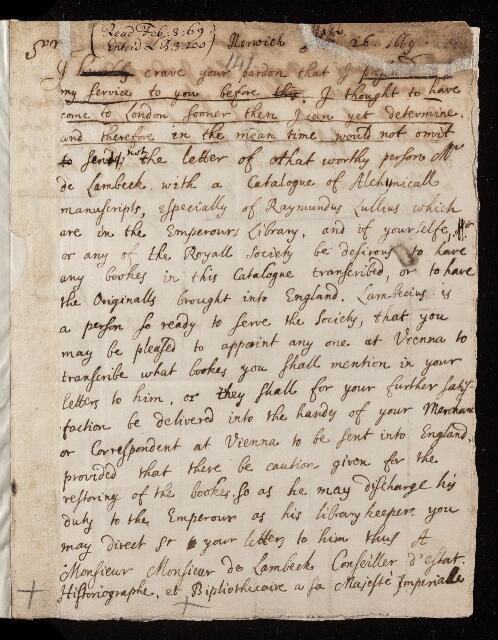 (Read Feb. 3: 69.
Entred L.B. 3. 200)
Sr Norwich 26. 1669.
I humbly crave your pardon that I
my service to you before this. I thought to have
come to London sooner then I can yet determine.
and therefore in the mean time would not omit
to send not the letter of that worthy person Mr
de Lambeck. with a Catalogue of Alchymicall
manuscripts, especially of Raymundus Lullius which
are in the Emperours Library, and if yourselfe,
or any of the Royall Society be desirous to have
any bookes in this Catalogue transcribed, or to have
the Originalls brought into England. Lambecius is
a person so ready to serve the Society, that you
may be pleased to appoint any one at Vienna to
transcribe what bookes you shall mention in your
letters to him, or they shall for your further satis
faction be delivered into the hands of your Merchant
or Correspondent at Vienna to be sent into England.
provided that there be caution given for the
restoring of the bookes, so as he may discharge his
duty to the Emperour as his library keeper. you
may direct Sr your letters to him thus A
Monsieur Monsieur de Lambeck Conseiller d'estat.
Historiographe, et Bipliothecaire a sa Majeste Imperialle